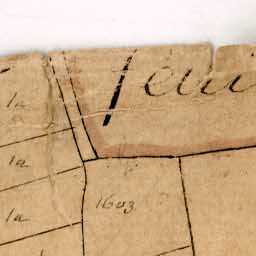 feui
1a
1a
1603
1a